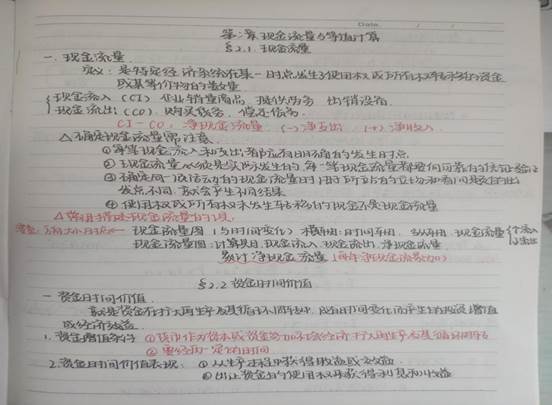 Date
第二章 现金流量与等值计算
§2.1. 现金流量
一. 现金流量
定义: 是特定经济系统在某一时点发生了使用权或所有权转移的资金
或其等价物的数量
现金流入 (CI) 企业销售商品 提供劳务 出销设备
现金流出 (CO) 购买 偿还债务
CI-CO: 净现金流量 (-)净支出 (+)净收入
△确定现金流量需注意
①每笔现金流入和支出都应有明确的发生时点
②现金流量必须是实际发生的, 每一笔现金流量都要
③确定同一 的现金流量时, 因所站的立场和看问题的出
发点不同, 就会产生不同结果
④使用权或所有权未发生转移的不是现金流量
△ 现金流量的 段
现金流量图 (与时间变化) 横轴: 时间 现金流量
现金流量 现金流入 现金流出 净现金流量
累计净现金流量
§2.2 资金时间价值
一 资金时间价值
就是资金在扩大再生产及其循环周转中, 随时间变化而产生的资金增值
或经济效益
1. 资金增值条件 ①货币作为资本或资金参加社会经济扩大再生产及其循环周转
②要经历一定的时间
2. 资金时间价值表现: ①从生产过程中获得收益或效益
②出让资金的使用权取获得利息和收益